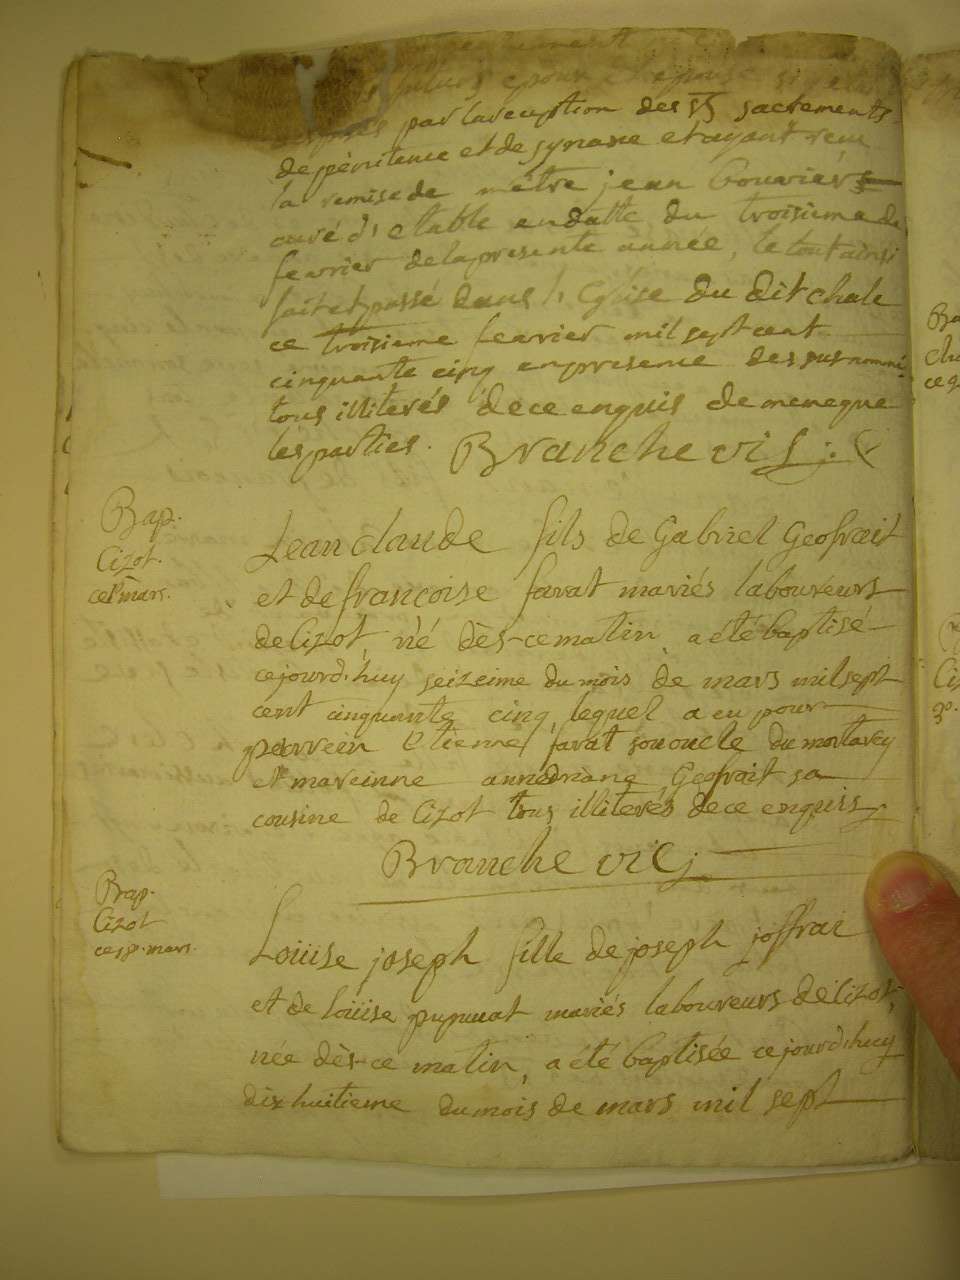 par la reception des Sts sacrements
de pénitence et de synaxe et ayant veu
la remise de métre jean Bouvier
curé d'etable en datte du troisieme de
fevrier de la presente année, le tout ainsi
fait et passé dans l'Eglise du dit chale
ce troisieme fevrier mil sept cent
cinquante cinq en presence des susnommé
tous illiterés de ce enquis de meneque
les parties. Branche vic
Bap.
Cizot.
ce mars.
Jean claude fils de Gabriel Geofrait
et de françoise favat mariés laboureurs
de Cizot, né dès-ce matin a été baptisé
cejourd'huy seizeime du mois de mars mil sept
cent cinquante cinq, lequel a eu pour
parrein Etienne favat son oncle du montavey
et mareinne annedriane Geofroit sa
cousine de Cizot tous illiterés de ce enquis
Branche vic
Bap.
Cizot
ce 18. mars.
Loüise joseph fille de joseph joffrai
et de loüise mariés laboureurs de Cizot
née dès-ce matin, a été baptisée cejourd'huy
dix huitieme du mois de mars mil sept